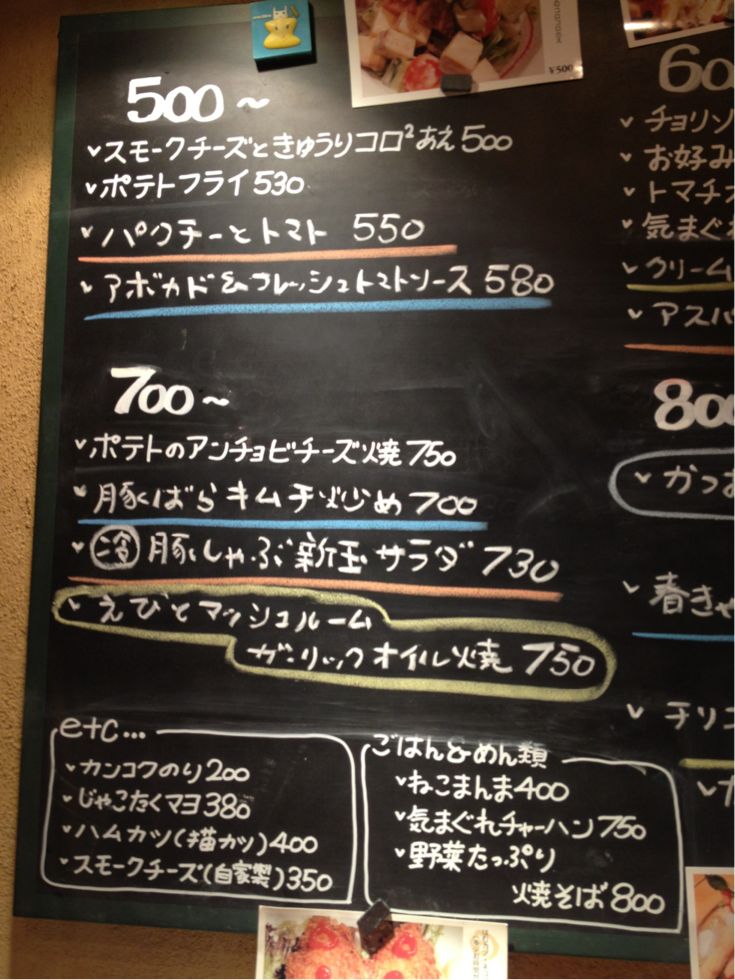 ¥500
500～
スモークチーズときゅうりコロ²あえ500
ポテトフライ530
パクチーとトマト 550
アボカド&フレッシュトマトソース 580
700～
ポテトのアンチョビチーズ焼750
豚ばらキムチ炒め700
冷 豚しゃぶ新玉サラダ730
えびとマッシュルーム
ガーリックオイル焼 750
etc...
カンコクのり200
じゃこたくマヨ380
ハムカツ(猫カツ)400
スモークチーズ(自家製)350
ごはん&めん類
ねこまんま400
気まぐれチャーハン750
野菜たっぷり
焼そば800
60
チョリソ
お好み
トマチ
気まぐれ
クリーム
アスパ
800
かつお
春きゃ
チリコ